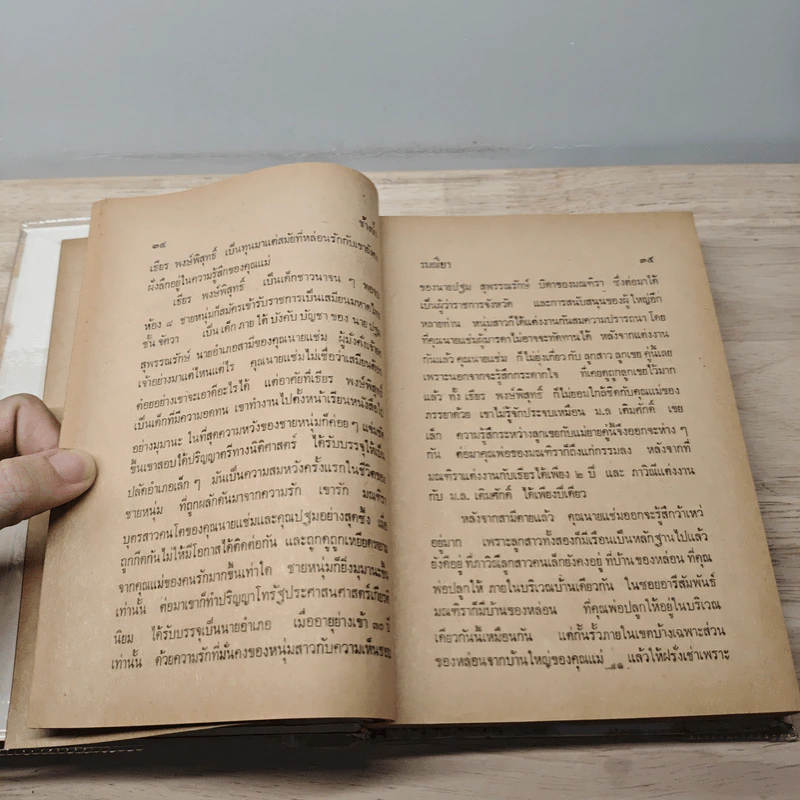 ๓๔
เธียร พงษ์พิสุทธิ์ เป็นทุนมาแต่สมัยที่หล่อนรักกับเขายัง
ฝังลึกอยู่ในความรู้สึกของคุณแม่
เธียร พงษ์พิสุทธิ์ เป็นเด็กชาวนาจน ๆ พอจบ
ห้อง ๘ ชายหนุ่มก็สมัครเข้ารับราชการเป็นเสมียนมหาดไทย
ชั้น จัตวา เป็น เด็ก ภาย ใต้ บังคับ บัญชา ของ นาย ปฐม
สุพรรณรักษ์ นายอำเภอสามีของคุณนายแช่ม ผู้มั่งคั่ง
เจ้าอย่างมาแต่ไหนแต่ไร คุณนายแช่มไม่เชื่อว่าเสมียน
ต๊อยอย่างเขาจะเอาดีอะไรได้ แต่อาศัยที่เธียร พงษ์พิสุทธิ์
เป็นเด็กที่มีความอดทน เขาทำงานไปตั้งหน้าเรียนหนังสือไป
อย่างมุมานะ ในที่สุดความหวังของชายหนุ่มก็ค่อย ๆ แจ่มชัด
ขึ้นเขาสอบได้ปริญญาตรีทางนิติศาสตร์ ได้รับบรรจุให้เป็น
ปลัดอำเภอเล็ก ๆ มันเป็นความสมหวังครั้งแรกในชีวิตของ
ชายหนุ่ม ที่ถูกผลักดันมาจากความรัก เขารัก มณฑิรา
บุตรสาวคนโตของคุณนายแช่มและคุณปฐมอย่างสุดซึ้ง เมื่อ
ถูกกีดกันไม่ให้มีโอกาสได้ติดต่อกัน และถูกดูถูกเหยียดหยาม
จากคุณแม่ของคนรักมากขึ้นเท่าใด ชายหนุ่มก็ยิ่งมุมานะขึ้น
เท่านั้น ต่อมาเขาก็ทำปริญญาโทรัฐประศาสนศาสตร์เกียรติ
นิยม ได้รับบรรจุเป็นนายอำเภอ เมื่ออายุย่างเข้า ๓๐ ปี
เท่านั้น ด้วยความรักที่มั่นคงของหนุ่มสาวกับความเห็นชอบ
รมณียา ๓๕
ของนายปฐม สุพรรณรักษ์ บิดาของมณฑิรา ซึ่งต่อมาได้
เป็นผู้ว่าราชการจังหวัด และการสนับสนุนของผู้ ใหญ่อีก
หลายท่าน หนุ่มสาวก็ได้แต่งงานกันสมความปรารถนา โดย
ที่คุณนายแช่มผู้มารดาไม่อาจจะทัดทานได้ หลังจากแต่งงาน
กันแล้ว คุณนายแช่ม ก็ ไม่ยุ่งเกี่ยว กับ ลูกสาว ลูกเขย คู่นี้เลย
เพราะนอกจากจะรู้สึกกระดากใจ ที่เคยดูถูกลูกเขยไว้มาก
แล้ว ทั้ง เธียร พงษ์พิสุทธิ์ ก็ไม่ยอมใกล้ชิดกับคุณแม่ของ
ภรรยาด้วย เขาไม่รู้จักประจบเหมือน ม.ล เติมศักดิ์ เขย
เล็ก ความรู้สึกระหว่างลูกเขยกับแม่ยายคู่นี้จึงออกจะห่าง ๆ
กัน ต่อมาคุณพ่อของมณฑิราก็ถึงแก่กรรมลง หลังจากที่
มณฑิราแต่งงานกับเธียรได้เพียง ๒ ปี และ ภาวิณีแต่งงาน
กับ ม.ล. เติมศักดิ์ ได้เพียงปีเดียว
หลังจากสามีตายแล้ว คุณนายแช่มออกจะรู้สึกว้าเหว่
อยู่มาก เพราะลูกสาวทั้งสองก็มีเรือนเป็นหลักฐานไปแล้ว
ยังดีอยู่ ที่ภาวิณีลูกสาวคนเล็กยังคงอยู่ ที่บ้าน ของหล่อน ที่คุณ
พ่อปลูกให้ ภายในบริเวณบ้านเดียวกัน ในซอยอารีสัมพันธ์
มณฑิราก็มีบ้านของหล่อน ที่คุณพ่อปลูกให้อยู่ในบริเวณ
เดียวกันนั้นเหมือนกัน แต่กั้นรั้วภายในเขตบ้างเฉพาะส่วน
ของหล่อนจากบ้านใหญ่ของคุณแม่ แล้วให้ฝรั่งเช่าเพราะ